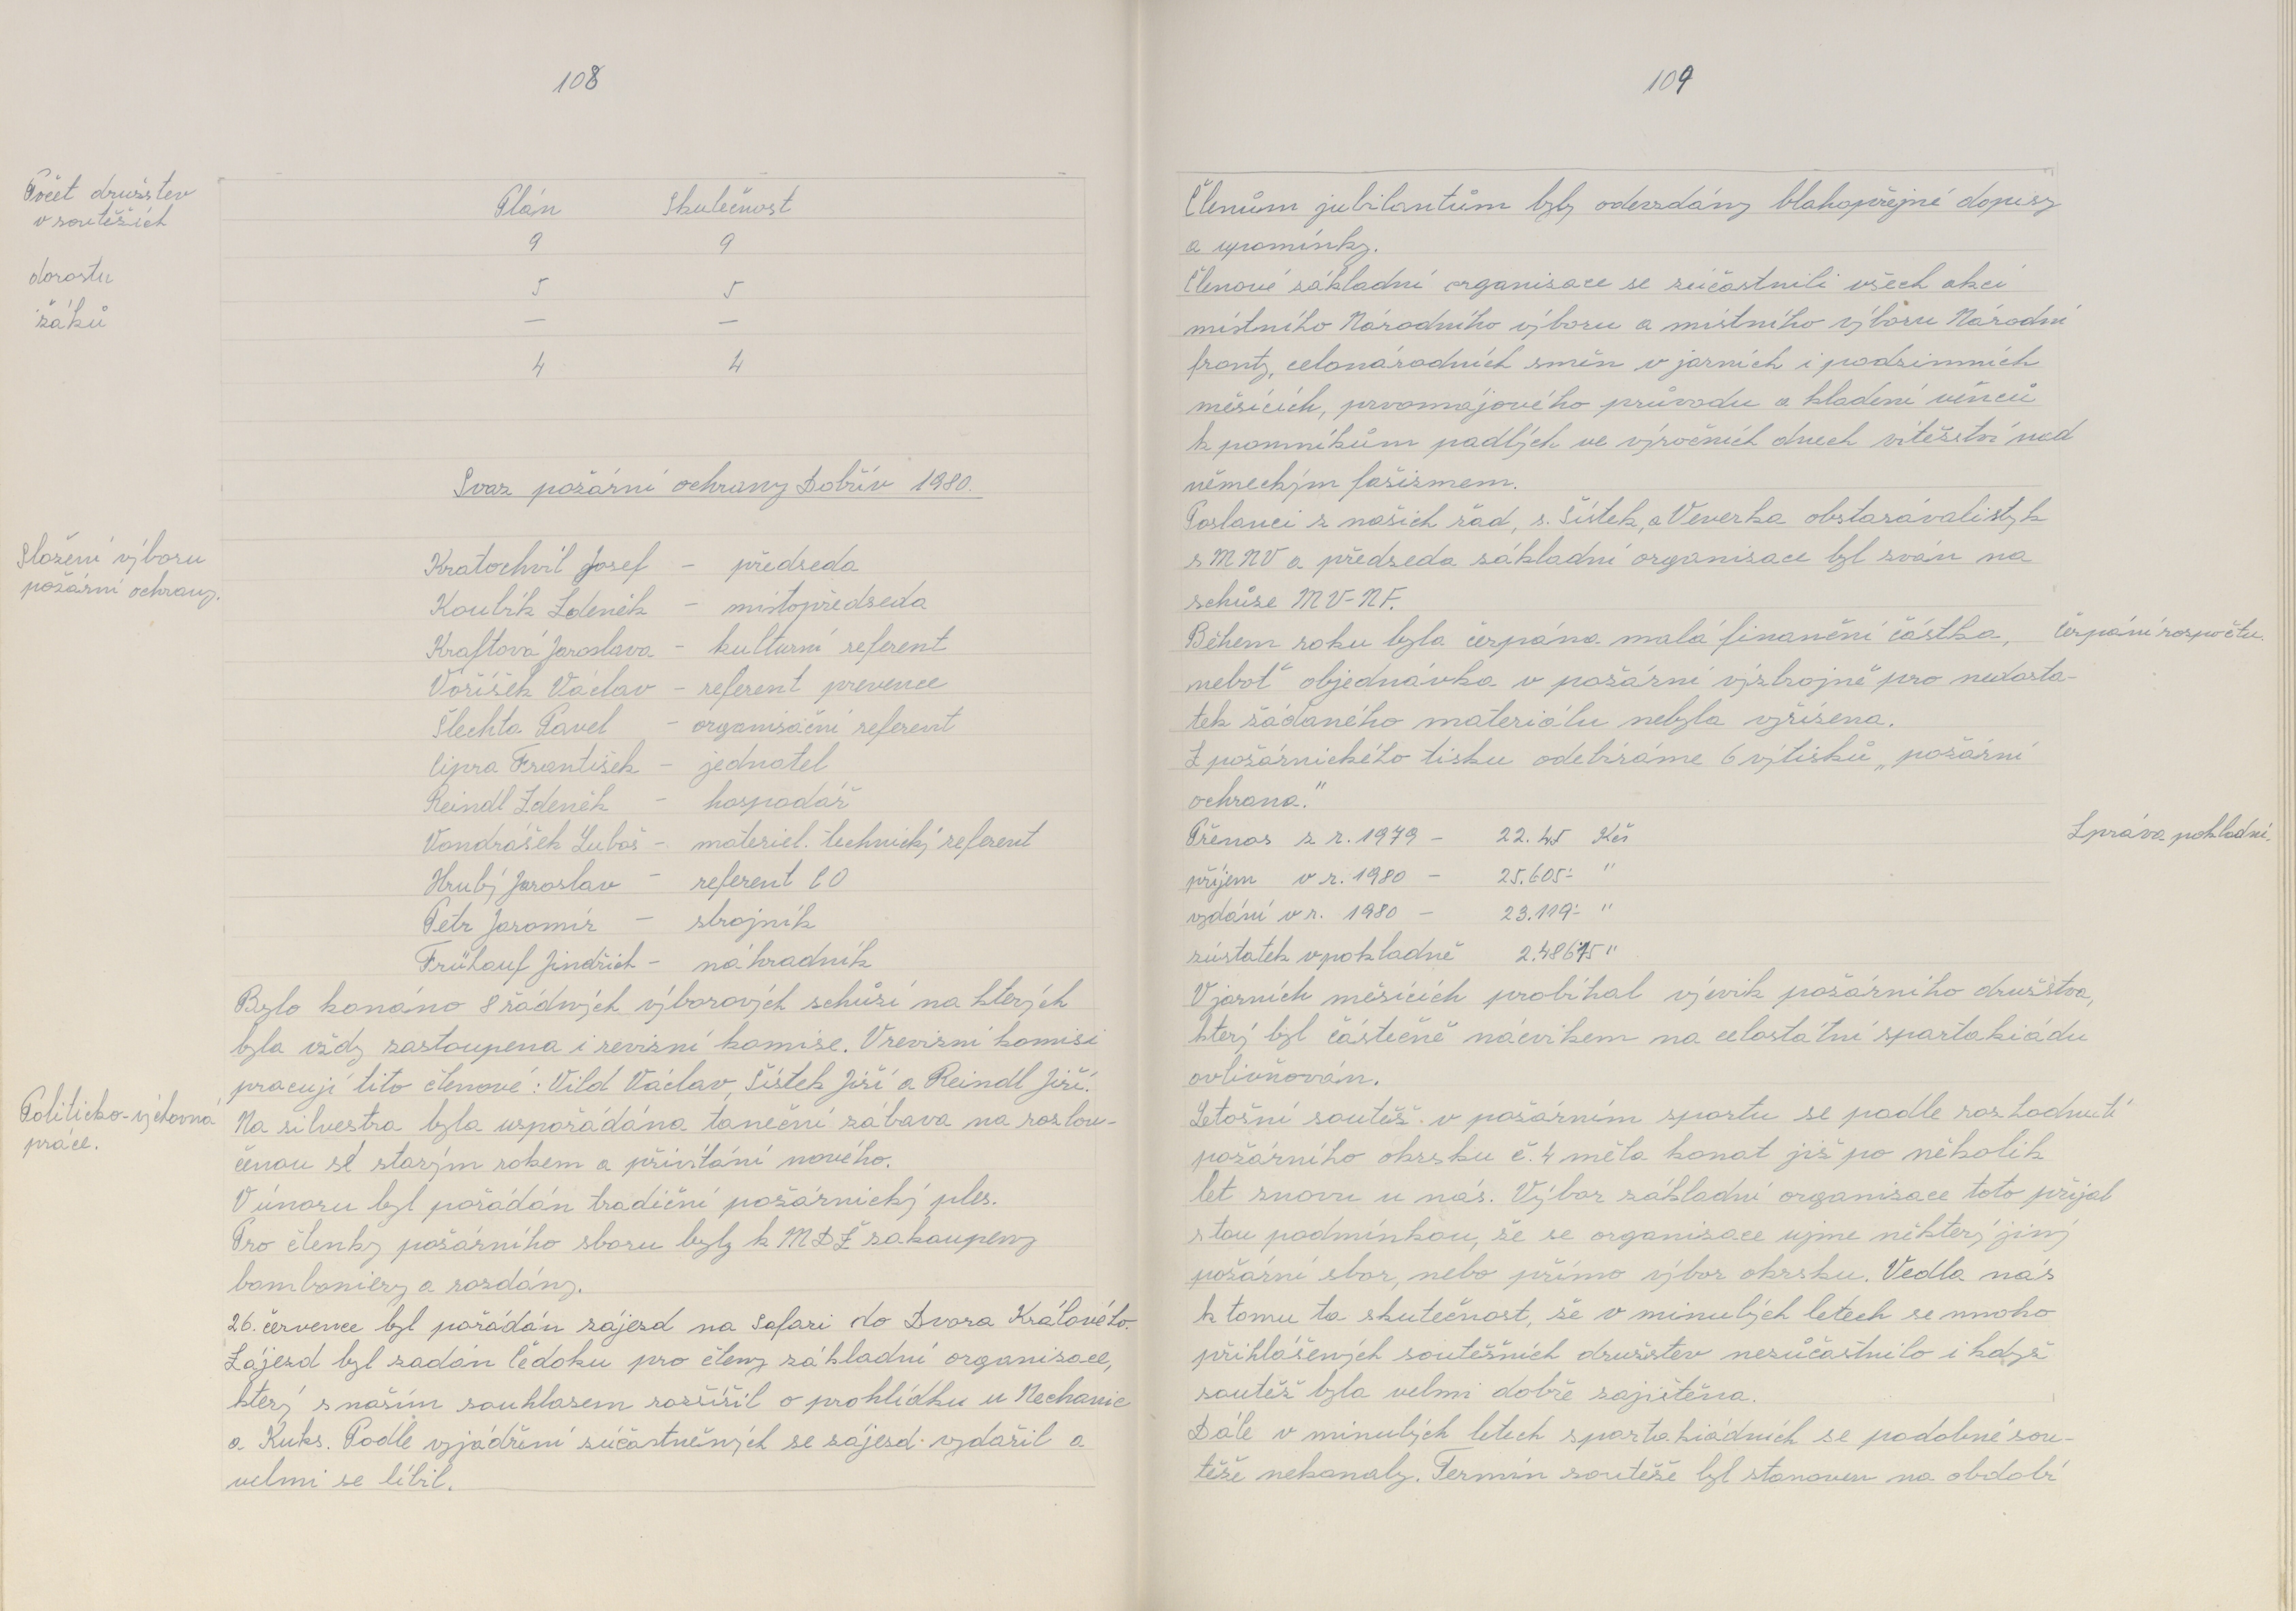 108
Počet družstev
v soutěžích
Plán Skutečnost
9 9
dorostu
5 5
žáků
— —
4 4
Svaz požární ochrany Dobřív 1980.
Složení výboru
požární ochrany.
Kratochvíl Josef - předseda
Koubík Zdeněk - místopředseda
Kraftová Jaroslava - kulturní referent
Voříšek Václav - referent prevence
Šlechta Pavel - organisační referent
Cipra František - jednatel
Reindl Zdeněk - hospodář
Vondrášek Luboš - materiel. technický referent
Hrubý Jaroslav - referent CO
Petr Jaromír - strojník
Frühauf Jindřich - náhradník
Bylo konáno 8 řádných výborových schůzí na kterých
byla vždy zastoupena i revizní komise. V revizní komisi
pracují tito členové: Vild Václav, Šístek Jiří a Reindl Jiří.
Politicko-výchovná
práce.
Na silvestra byla uspořádána taneční zábava na rozlou-
čenou se starým rokem a přivítání nového.
V únoru byl pořádán tradiční požárnický ples.
Pro členky požárního sboru byly k MDŽ zakoupeny
bomboniery a rozdány.
26. července byl pořádán zájezd na Safari do Dvora Králového.
Zájezd byl zadán Čedoku pro členy základní organisace,
který s naším souhlasem rozšířil o prohlídku u Nechanic
a Kuks. Podle vyjádření zúčastněných se zájezd vydařil a
velmi se líbil.
109
Členům jubilantům byly odevzdány blahopřejné dopisy
a upomínky.
Členové základní organisace se zúčastnili všech akcí
místního Národního výboru a místního výboru Národní
fronty, celonárodních směn v jarních i podzimních
měsících, prvomájového průvodu a kladení věnců
k pomníkům padlých ve výročních dnech vítězství nad
německým fašizmem.
Poslanci z našich řad, s. Šístek, a Veverka obstarávali styk
s MNV a předseda základní organisace byl zván na
schůze MV-NF.
Během roku byla čerpána malá finanční částka,
Čerpání rozpočtu.
neboť objednávka v požární výzbrojně pro nedosta-
tek žádaného materiálu nebyla vyřízena.
Z požárnického tisku odebíráme 6 výtisků „požární
ochrana."
Zpráva pokladní.
Přenos z r. 1979 - 22.45 Kčs
příjem v r. 1980 - 25.605.- "
vydání v r. 1980 - 23.119.- "
zůstatek v pokladně "
V jarních měsících probíhal výcvik požárního družstva,
který byl částečně nácvikem na celostátní spartakiádu
ovlivňován.
Letošní soutěž v požárním sportu se podle rozhodnutí
požárního okrsku č. 4 měla konat již po několik
let znovu u nás. Výbor základní organisace toto přijal
s tou podmínkou, že se organisace ujme některý jiný
požární sbor, nebo přímo výbor okrsku. Vedla nás
k tomu ta skutečnost, že v minulých letech se mnoho
přihlášených soutěžních družstev nezúčastnilo i když
soutěž byla velmi dobře zajištěna.
Dále v minulých letech spartakiádních se podobné sou-
těže nekonaly. Termín soutěže byl stanoven na období